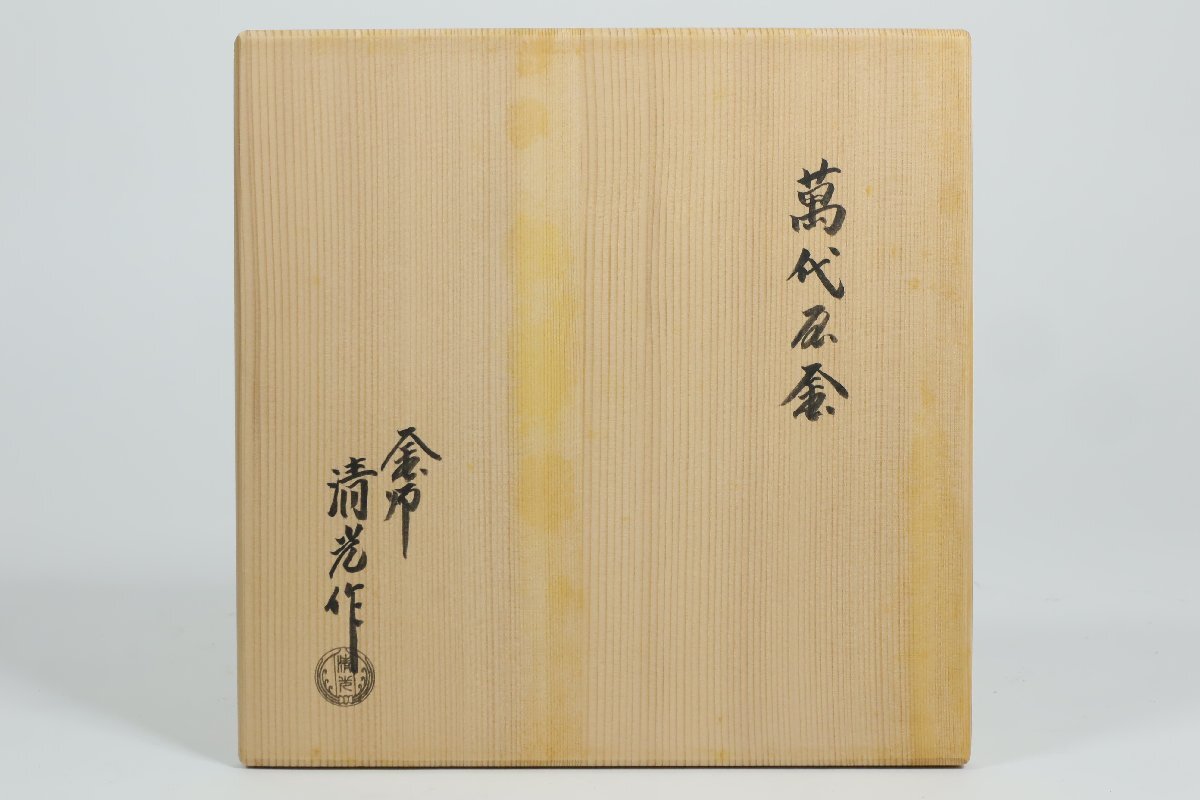 萬代屋釜
釜師
清光作
清光